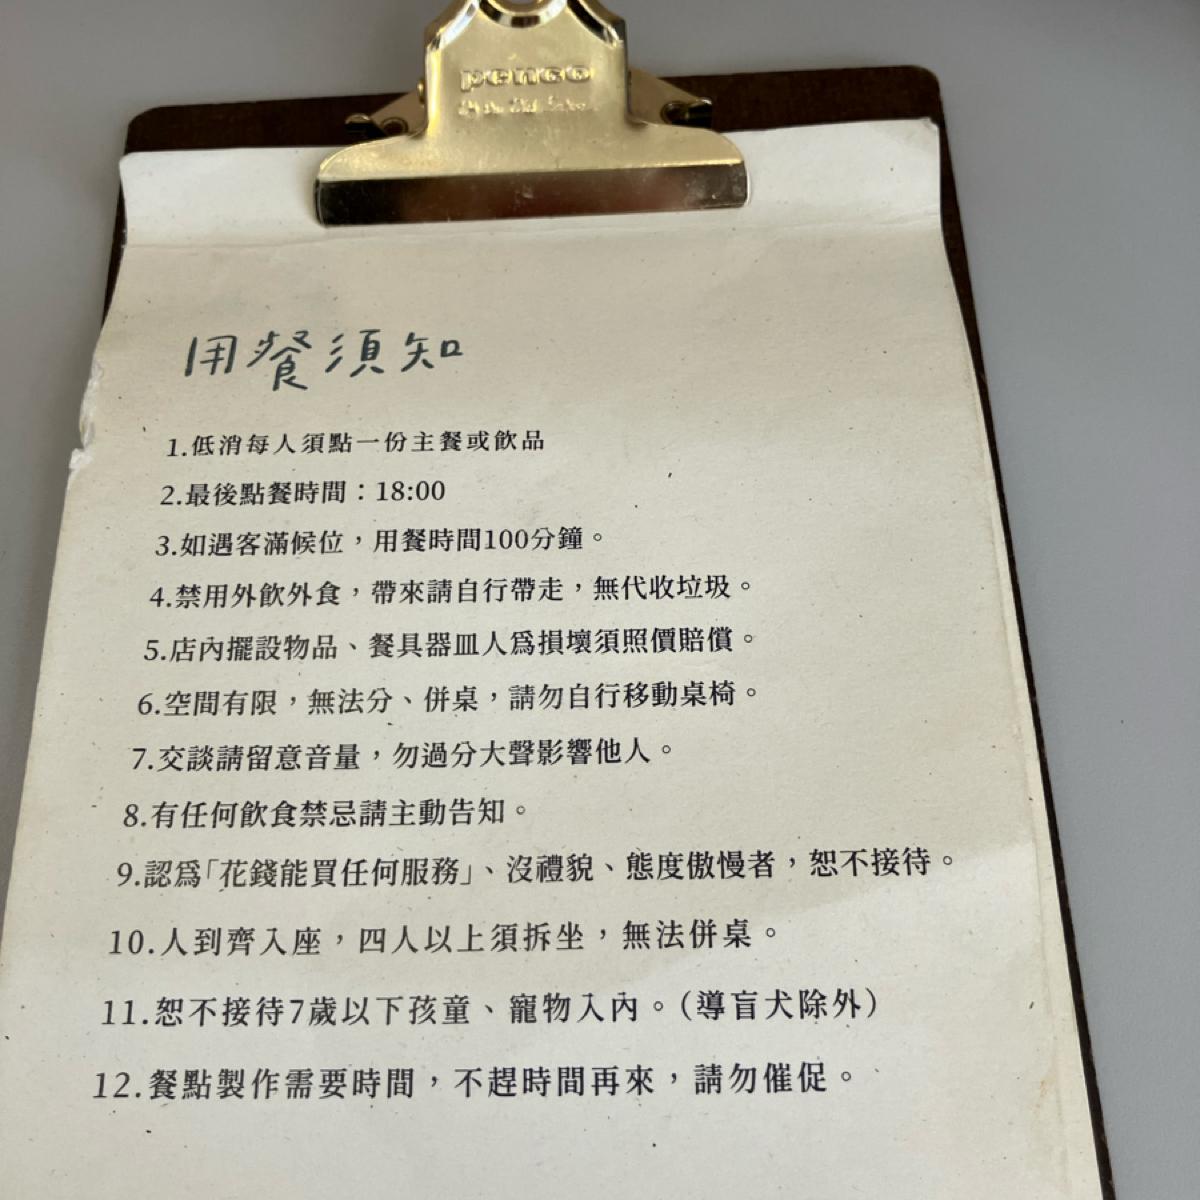 penco
用餐須知
1.低消每人須點一份主餐或飲品
2.最後點餐時間：18:00
3.如遇客滿候位，用餐時間100分鐘。
4.禁用外飲外食，帶來請自行帶走，無代收垃圾。
5.店內擺設物品、餐具器皿人為損壞須照價賠償。
6.空間有限，無法分、併桌，請勿自行移動桌椅。
7.交談請留意音量，勿過分大聲影響他人。
8.有任何飲食禁忌請主動告知。
9.認為「花錢能買任何服務」、沒禮貌、態度傲慢者，恕不接待。
10.人到齊入座，四人以上須拆坐，無法併桌。
11.恕不接待7歲以下孩童、寵物入內。（導盲犬除外）
12.餐點製作需要時間，不趕時間再來，請勿催促。